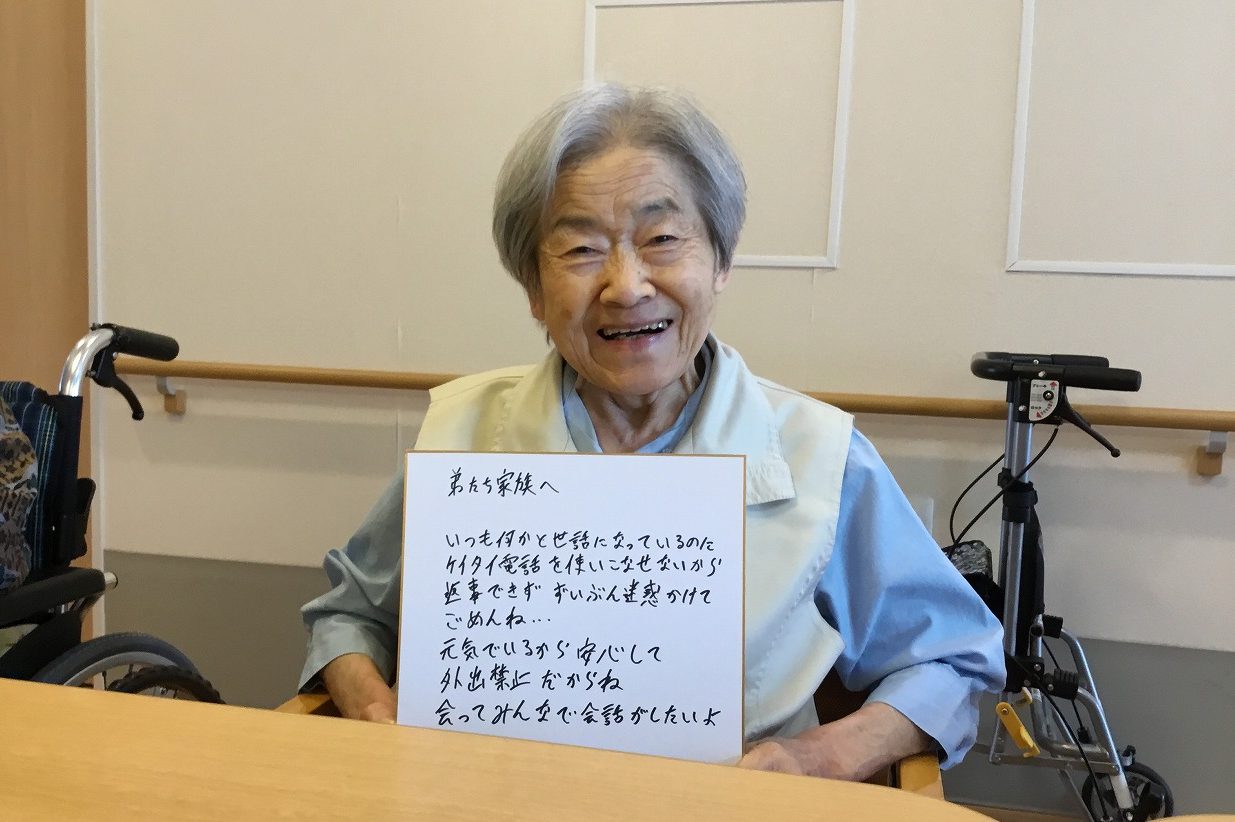 弟たち家族へ
いつも何かと世話になっているのに
ケイタイ電話を使いこなせないから
返事できず ずいぶん迷惑かけて
ごめんね…
元気でいるから安心して
外出禁止だからね
会ってみんなで会話がしたいよ